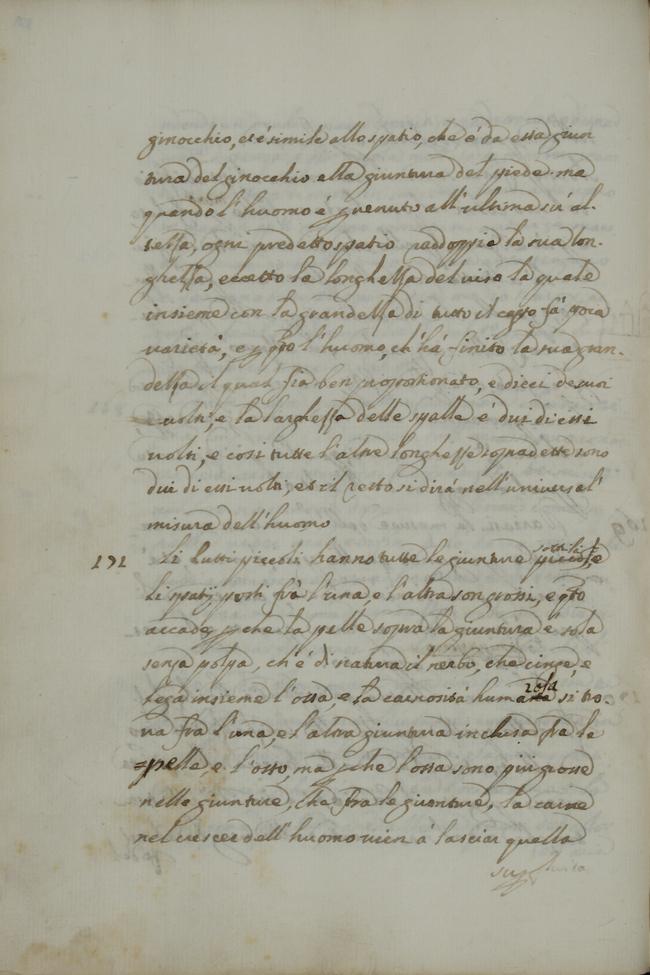 ginocchio, et è simile allo spatio, che è da essa giun
tura del ginocchio alla giuntura del piede. ma
quando l'huomo è pvenuto all'ultima sua al-
tezza, ogni predetto spatio raddoppia la sua lon-
ghezza, eccetto la longhezza del viso la quale
insieme con la grandezza di tutto il capo fà poca
varietà, e p qto l'huomo, ch'hà finito la sua gran-
dezza il qual sia ben proportionato, e dieci de suoi
volti, e la larghezza delle spalle è dui di essi
volti, e cosi tutte l'altre longhezze sopradette sono
dui di essi volti, et il resto si dirà nell'universal'
misura dell'huomo
191 Li putti piccoli hanno tutte le giunture sottili, e
li spatij posti frà l'una, e l'altra son grossi, e qto
accade pche la pelle sopra la giuntura è sola
senza polpa, ch'è di natura il nerbo, che cinge, e
lega insieme l'ossa, e la carnosità humorosa si tro-
va frà l'una, e l'altra giuntura inclusa frà la
pelle, e l'osso, ma pche l'ossa sono più grosse
nelle giunture, che frà le giunture, la carne
nel crescer dell'huomo vien à lasciar quella
supfluità